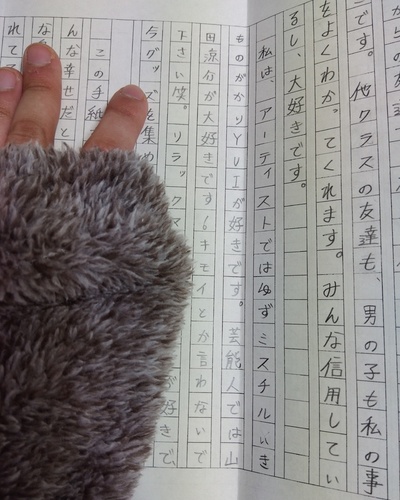 からの友達
こです。他クラスの友達も、男の子も私の事
をよくわかってくれます。みんな信用してい
るし、大好きです。
私は、アーティストではゆずミスチルいき
ものがかりYUIが好きです。芸能人では山
田涼介が大好きです!キモイとか言わないで
下さい笑。リラックマ が好きで、
今グッズを集め
この手紙
んな幸せだと
な
れて